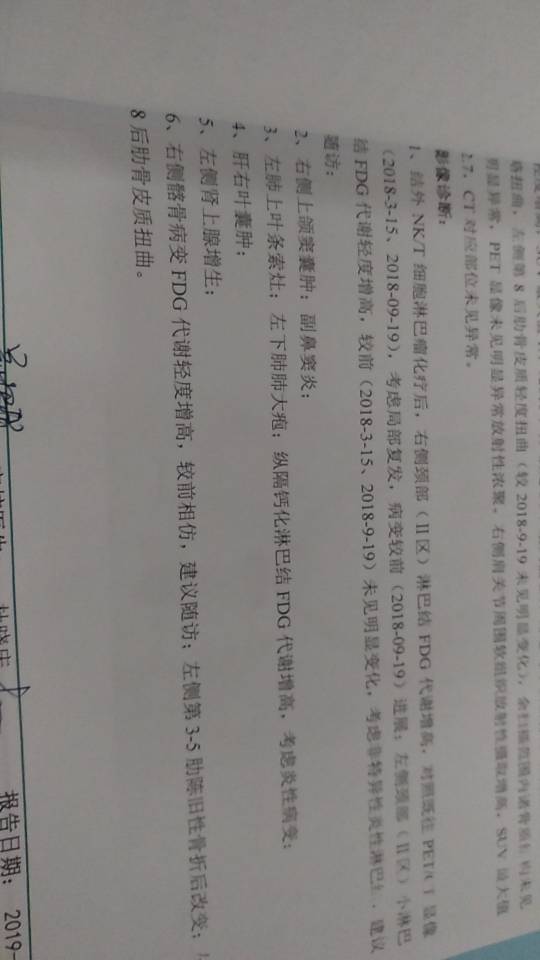 痕扭曲，左侧第 8 后肋骨皮质轻度扭曲（较 2018-9-19 未见明显变化），余扫描范围内诸骨质结构未见
明显异常，PET 显像未见明显异常放射性浓聚。右侧肩关节周围软组织放射性摄取增高，SUV 最大值
2.7，CT 对应部位未见异常。
影像诊断：
1、结外 NK/T 细胞淋巴瘤化疗后，右侧颈部（II区）淋巴结 FDG 代谢增高，对照既往 PET/CT 显像
（2018-3-15、2018-09-19），考虑局部复发，病变较前（2018-09-19）进展；左侧颈部（II区）小淋巴
结 FDG 代谢轻度增高，较前（2018-3-15、2018-9-19）未见明显变化，考虑非特异性炎性淋巴结，建议
随访；
2、右侧上颌窦囊肿；副鼻窦炎；
3、左肺上叶条索灶；左下肺肺大疱；纵隔钙化淋巴结 FDG 代谢增高，考虑炎性病变；
4、肝右叶囊肿；
5、左侧肾上腺增生；
6、右侧髂骨病变 FDG 代谢轻度增高，较前相仿，建议随访；左侧第 3-5 肋陈旧性骨折后改变；
8 后肋骨皮质扭曲。
报告日期： 2019-